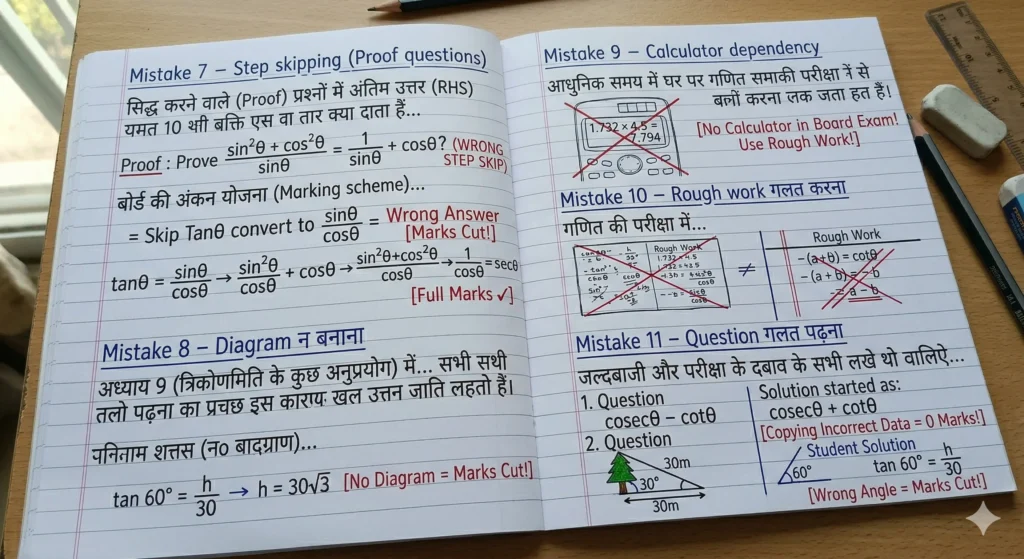 Mistake 7 – Step skipping (Proof questions)
सिद्ध करने वाले (Proof) प्रश्नों में अंतिम उत्तर (RHS)
यमत 10 थी बक्ति एस वा तार क्या दाता है...
Proof : Prove (sin²θ + cos²θ)/sinθ = 1/sinθ + cosθ? (WRONG STEP SKIP)
बोर्ड की अंकन योजना (Marking scheme)...
= Skip Tanθ convert to sinθ/cosθ = Wrong Answer [Marks Cut!]
tanθ = sinθ/cosθ → sin²θ/cosθ + cosθ → (sin²θ+cos²θ)/cosθ → 1/cosθ = secθ
[Full Marks ✓]
Mistake 8 – Diagram न बनाना
अध्याय 9 (त्रिकोणमिति के कुछ अनुप्रयोग) में... सभी सथी
तलो पढ़ना का प्रचछ इस कारायः खल उत्तन जाति लहतो हैं।
पनिताम शत्तस (न० बादग्राण)...
tan 60° = h/30 → h = 30√3 [No Diagram = Marks Cut!]
Mistake 9 – Calculator dependency
आधुनिक समय में घर पर गणित समाकी परीक्षा में से
बलों करना लक जता हत हैं!
1.732 × 4.5 =
7.794
[No Calculator in Board Exam!
Use Rough Work!]
Mistake 10 – Rough work गलत करना
गणित की परीक्षा में...
Rough Work
1.732 × 4.5
≠
Rough Work
-(a+b) = cotθ
-(a+b) = -b
= a - b
Mistake 11 – Question गलत पढ़ना
जल्दबाजी और परीक्षा के दबाव के सभी लखे थो वालिऐ...
1. Question
cosecθ – cotθ
2. Question
30m
30°
30m
Solution started as:
cosecθ + cotθ
[Copying Incorrect Data = 0 Marks!]
Student Solution
60°
tan 60° = h/30
[Wrong Angle = Marks Cut!]